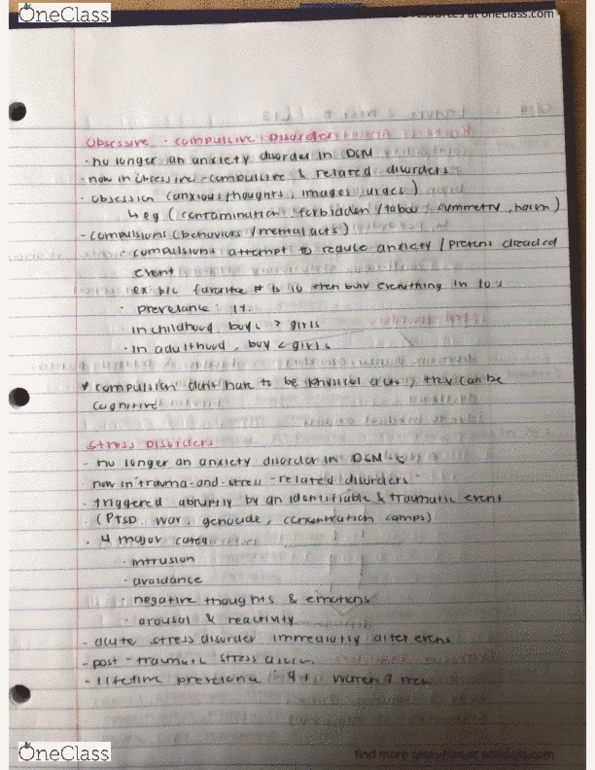 OneClass
resources at oneclass.com
Obsessive - compulsive Disorder
- no longer an anxiety disorder in DSM
- now in obsessive-compulsive & related disorders
- obsession (anxious thoughts, images, urges)
↳ eg (contamination, forbidden/taboo, symmetry, harm)
- compulsions (behaviors/mental acts)
· compulsions attempt to reduce anxiety/prevent dreaded
event
· ex: favorite # is 10 then buy everything in 10s
· prevelance: 1%
· in childhood boys > girls
· in adulthood, boy < girls
* compulsion don't have to be physical acts, they can be
cognitive
Stress Disorders
- no longer an anxiety disorder in DSM-
- now in trauma-and-stress-related disorders
- triggered abruptly by an identifiable & traumatic event
- (PTSD, war, genocide, concentration camps)
- 4 major
· intrusion
· avoidance
· negative thoughts & emotions
· arousal & reactivity
- acute stress disorder immediatly after event
- post-traumatic stress
- lifetime women > men
OneClass
find more resources at oneclass.com